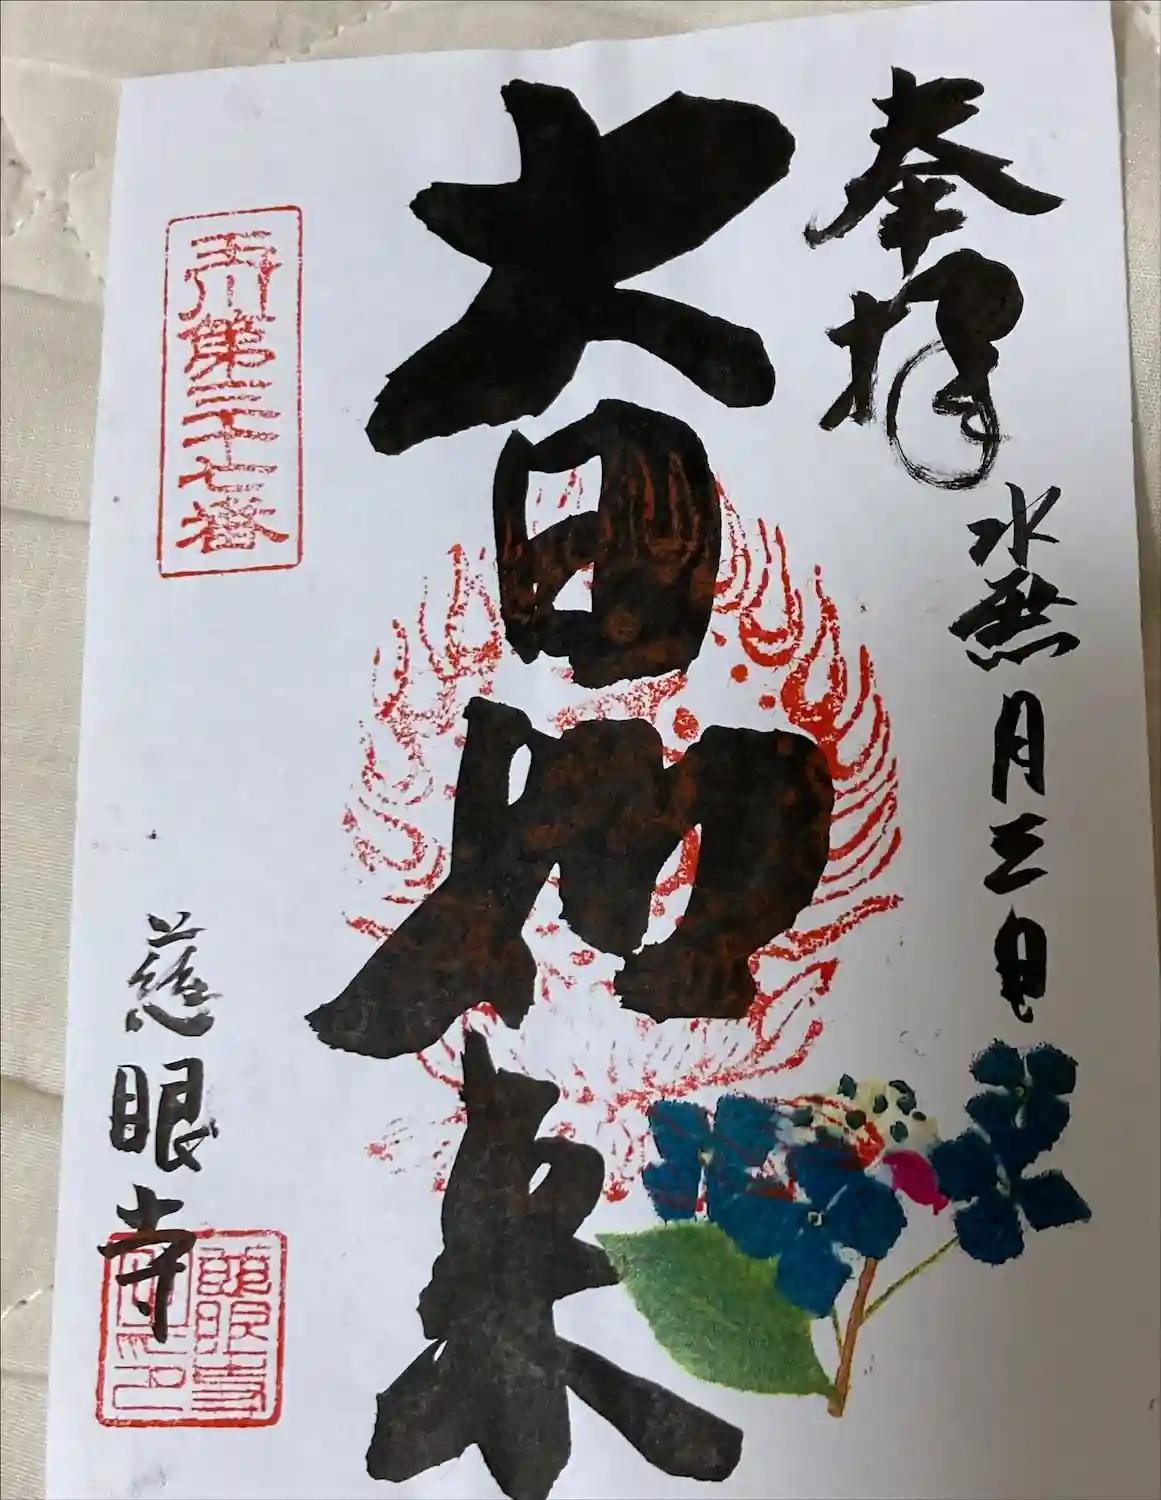 奉拝
水無月三日
大日如来
玉川第三十七番
慈眼寺
慈眼寺